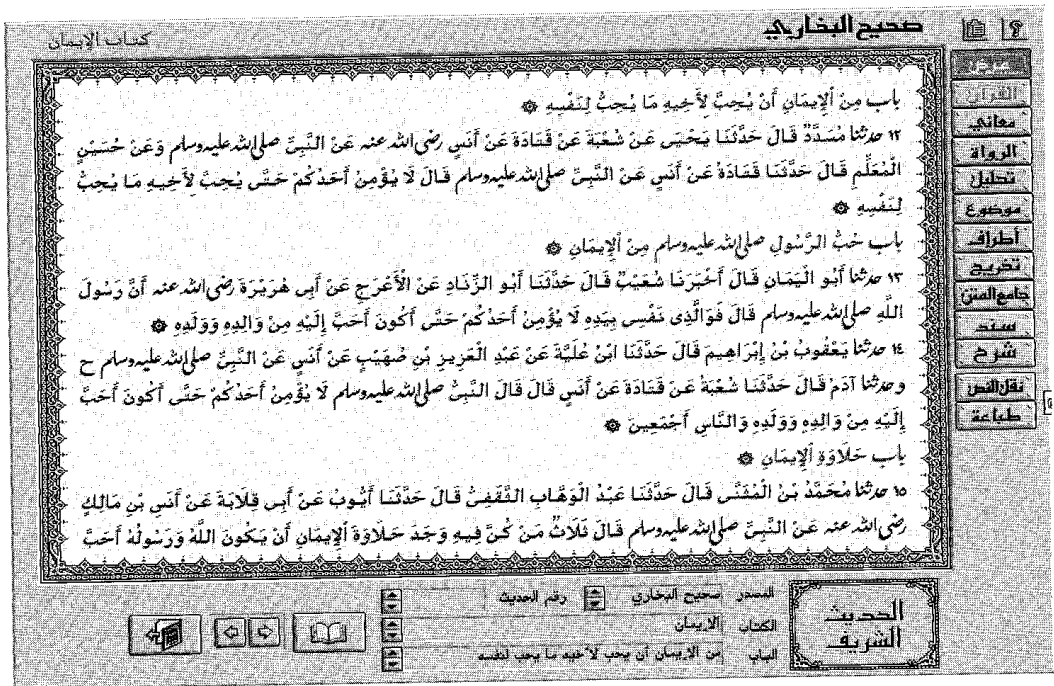 صحيح البخاري
كتاب الإيمان
باب مِنَ ٱلْإِيمَانِ أَنْ يُحِبَّ لِأَخِيهِ مَا يُحِبُّ لِنَفْسِهِ ۞
١٢ حدثنا مُسَدَّدٌ قَالَ حَدَّثَنَا يَحْيَى عَنْ شُعْبَةَ عَنْ قَتَادَةَ عَنْ أَنَسٍ رضى الله عنه عَنْ النَّبِيِّ صلى الله عليه وسلم وَعَنْ حُسَيْنٍ
الْمُعَلِّمِ قَالَ حَدَّثَنَا قَتَادَةُ عَنْ أَنَسٍ عَنْ النَّبِيِّ صلى الله عليه وسلم قَالَ لَا يُؤْمِنُ أَحَدُكُمْ حَتَّى يُحِبَّ لِأَخِيهِ مَا يُحِبُّ
لِنَفْسِهِ ۞
باب حُبُّ الرَّسُولِ صلى الله عليه وسلم مِنْ ٱلْإِيمَانِ ۞
١٣ حدثنا أَبُو الْيَمَانِ قَالَ أَخْبَرَنَا شُعَيْبٌ قَالَ حَدَّثَنَا أَبُو الزِّنَادِ عَنْ الْأَعْرَجِ عَنْ أَبِى هُرَيْرَةَ رضى الله عنه أَنَّ رَسُولَ
اللَّهِ صلى الله عليه وسلم قَالَ فَوَالَّذِى نَفْسِى بِيَدِهِ لَا يُؤْمِنُ أَحَدُكُمْ حَتَّى أَكُونَ أَحَبَّ إِلَيْهِ مِنْ وَالِدِهِ وَوَلَدِهِ ۞
١٤ حدثنا يَعْقُوبُ بْنُ إِبْرَاهِيمَ قَالَ حَدَّثَنَا ابْنُ عُلَيَّةَ عَنْ عَبْدِ الْعَزِيزِ بْنِ صُهَيْبٍ عَنْ أَنَسٍ عَنْ النَّبِيِّ صلى الله عليه وسلم ح
و حدثنا آدَمُ قَالَ حَدَّثَنَا شُعْبَةُ عَنْ قَتَادَةَ عَنْ أَنَسٍ قَالَ قَالَ النَّبِيُّ صلى الله عليه وسلم لَا يُؤْمِنُ أَحَدُكُمْ حَتَّى أَكُونَ أَحَبَّ
إِلَيْهِ مِنْ وَالِدِهِ وَوَلَدِهِ وَالنَّاسِ أَجْمَعِينَ ۞
باب حَلَاوَةِ ٱلْإِيمَانِ ۞
١٥ حدثنا مُحَمَّدُ بْنُ الْمُثَنَّى قَالَ حَدَّثَنَا عَبْدُ الْوَهَّابِ الثَّقَفِىُّ قَالَ حَدَّثَنَا أَيُّوبُ عَنْ أَبِى قِلَابَةَ عَنْ أَنَسِ بْنِ مَالِكٍ
رضى الله عنه عَنْ النَّبِيِّ صلى الله عليه وسلم قَالَ ثَلَاثٌ مَنْ كُنَّ فِيهِ وَجَدَ حَلَاوَةَ ٱلْإِيمَانِ أَنْ يَكُونَ اللَّهُ وَرَسُولُهُ أَحَبَّ
عرض
القرآن
معاني
الرواة
تحليل
موضوع
أطراف
تخريج
جامع المتن
سند
شرح
نقل النص
طباعة
الحديث
الشريف
المصدر صحيح البخاري رقم الحديث
الكتاب الإيمان
الباب من الإيمان أن يحب لأخيه ما يحب لنفسه